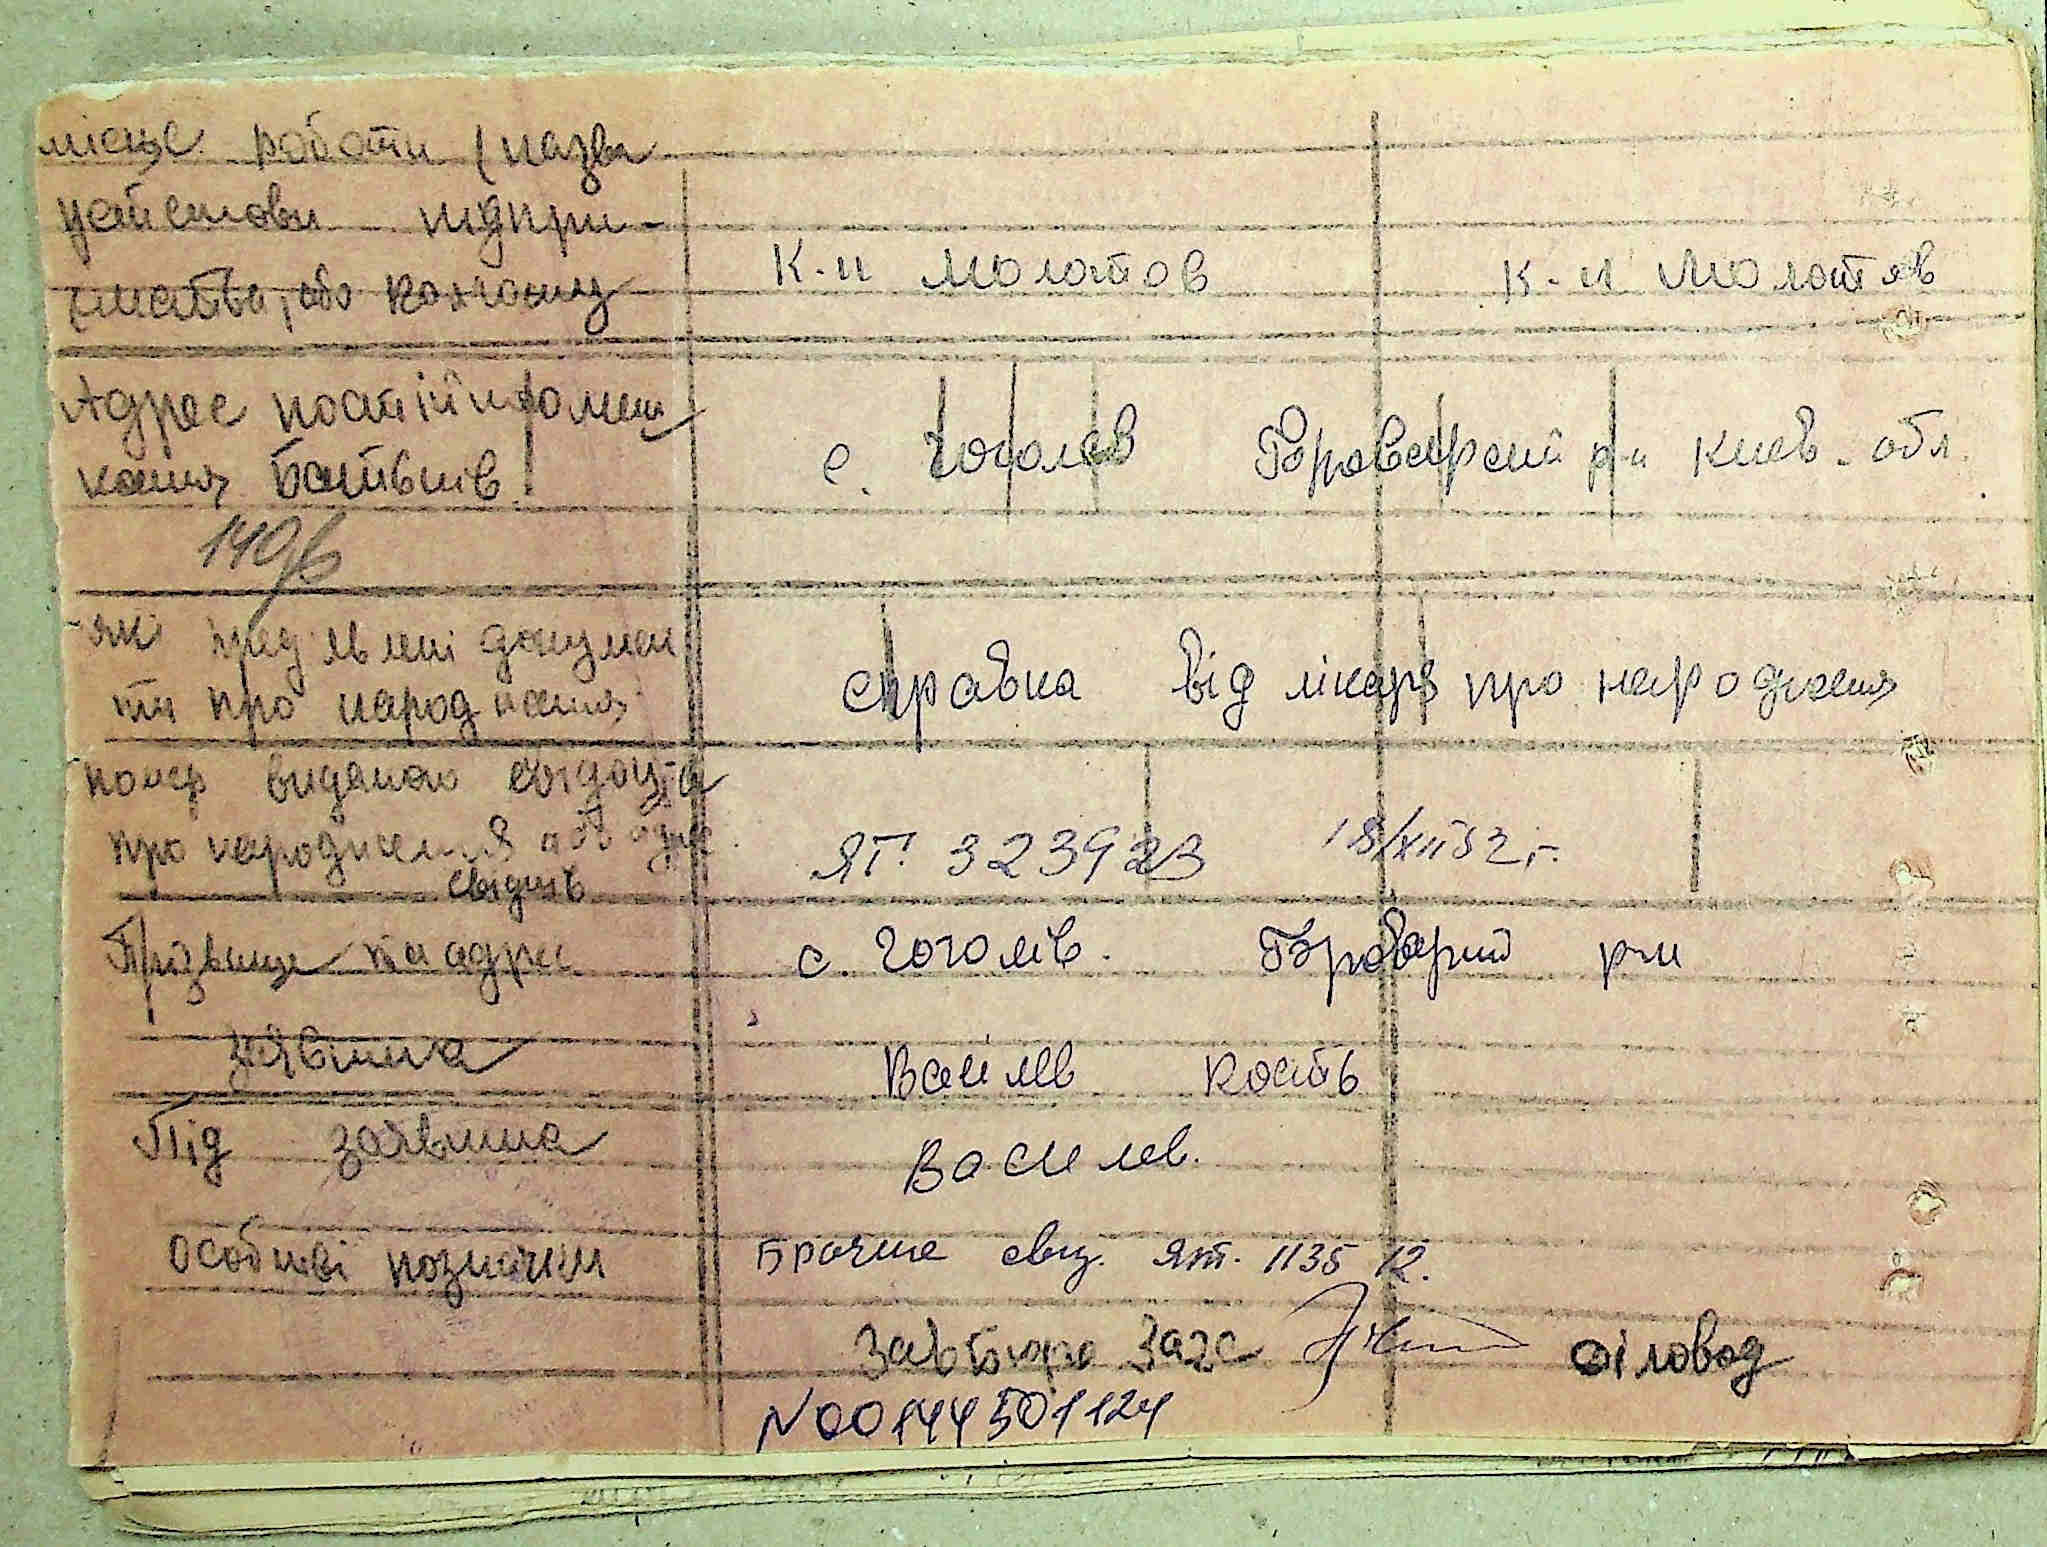 місце роботи (назва
установи підпри-
ємства, або колгоспу
К-п Молотов К-п Молотов
Адрес постійн помеш
кання батьків
с. Гоголев Броварский р-н Киев. обл.
140
які пред'явлені докумен
ти про народження
справка від лікаря про народження
номер виданого свідоц-ва
про народження або
свідців
ЯГ. 323923 18/XII 52 г.
Прізвище та адрес
с. Гоголів. Броварший р-н
заявника
Васілев Кость
Під заявника
Василев.
Особливі позначки
Брачне свід. ЯТ. 113512.
Завбюро Загс діловод
N00144501124